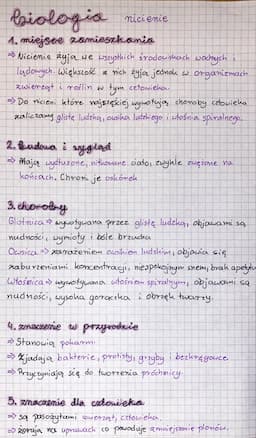 biologia nicienie
1. miejsce zamieszkania
⇒ Nicienie żyją we wszystkich środowiskach wodnych i
lądowych. Większość z nich żyją jednak w organizmach
zwierząt i roślin w tym człowieka.
⇒ Do nicieni które najczęściej wywołują choroby człowieka
zaliczamy glistę ludzką, owsika ludzkiego i włośnia spiralnego.
2. Budowa i wygląd
⇒ Mają wydłużone, nitkowane ciało, zwykle zwężane na
końcach. Chroni je oskórek
3. choroby
Glistnica ⇒ wywoływana przez glistę ludzką, objawami są
nudności, wymioty i bóle brzucha
Owsica ⇒ zarażeniem owsikiem ludzkim, objawia się
zaburzeniami koncentracji, niespokojnym snem, brak apetytu
Włośnica ⇒ wywoływana włośniem spiralnym, objawami są
nudności, wysoka gorączka i obrzęk twarzy.
4. znaczenie w przyrodzie
⇒ Stanowią pokarm
⇒ Zjadają bakterie, protisty, grzyby i bezkręgowce
⇒ Przyczyniają się do tworzenia próchnicy
5. znaczenie dla człowieka
⇒ są pasożytami zwierząt, człowieka.
⇒ żerują na uprawach co powoduje zmniejszenie plonów.